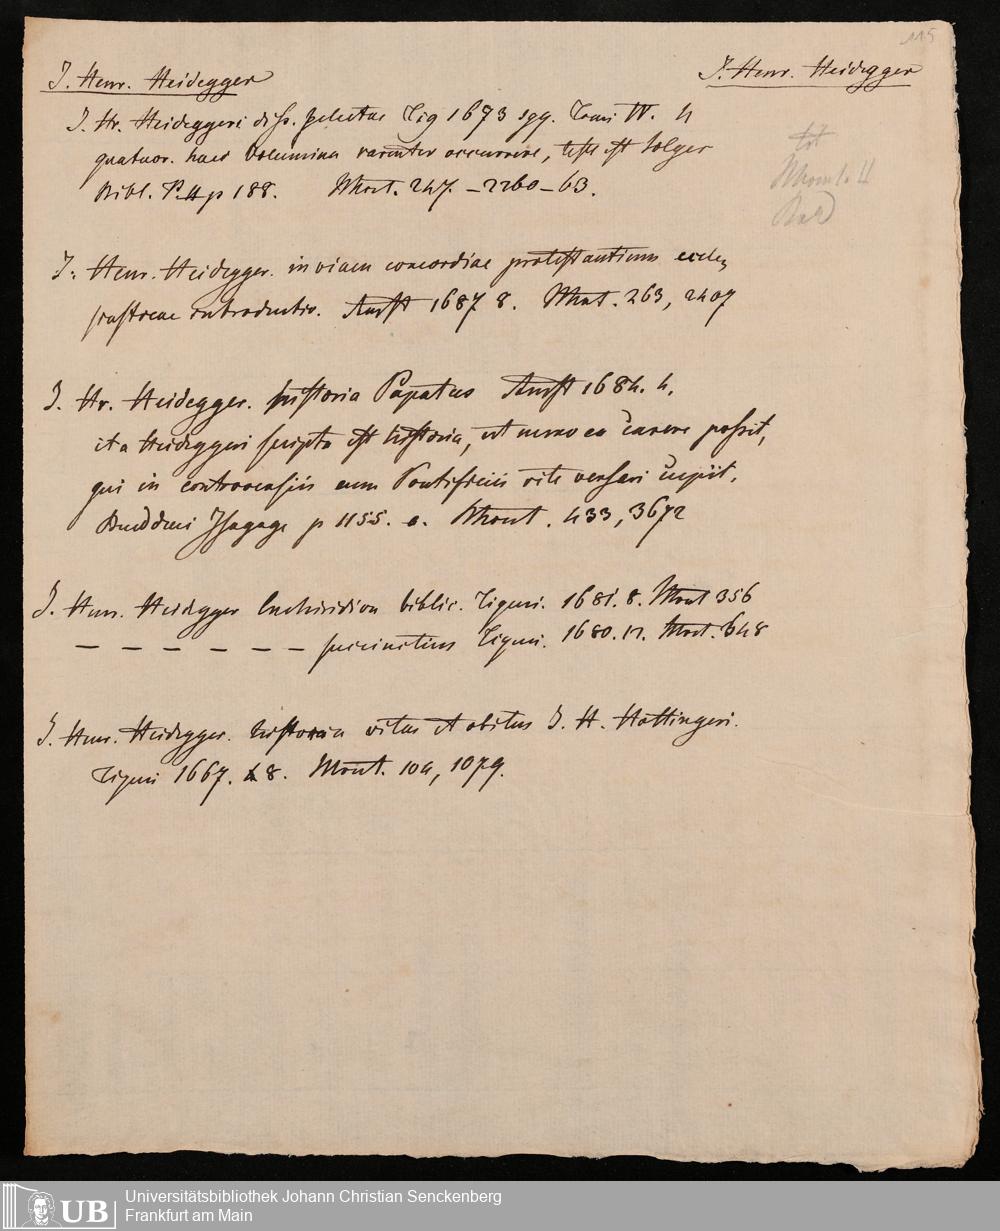 115
J. Henr. Heidegger
J. Henr. Heidegger
J. Hr. Heideggeri diss. selectae Tig 1673 sqq. Tomi IV. 4
quatuor. haec volumina rarenter occurrere, teste est Solger
Bibl. P. II p 188. 247. – 2260 – 63.
J. Henr. Heidegger. in viam concordiae protestantium eccle,
siasticae introductio. Amst 1687 8. 263, 2407
J. Hr. Heidegger. historia Papatus Amst 1684. 4.
ita Heideggeri scripta est historia, ut nemo ea carere possit,
qui in controversiis cum Pontificiis rite versari cupiit.
Buddeus Isagoge p 1155. a. 433, 3672
J. Henr. Heidegger Enchiridion biblic. Tiguri. 1681. 8. 356
– – – – – – – succinctius Tiguri. 1680. 12. 348
J. Henr. Heidegger. historia vitae et obitus J. H. Hottingeri.
Tiguri 1667. 8. 104, 1079.
Universitätsbibliothek Johann Christian Senckenberg
Frankfurt am Main
UB